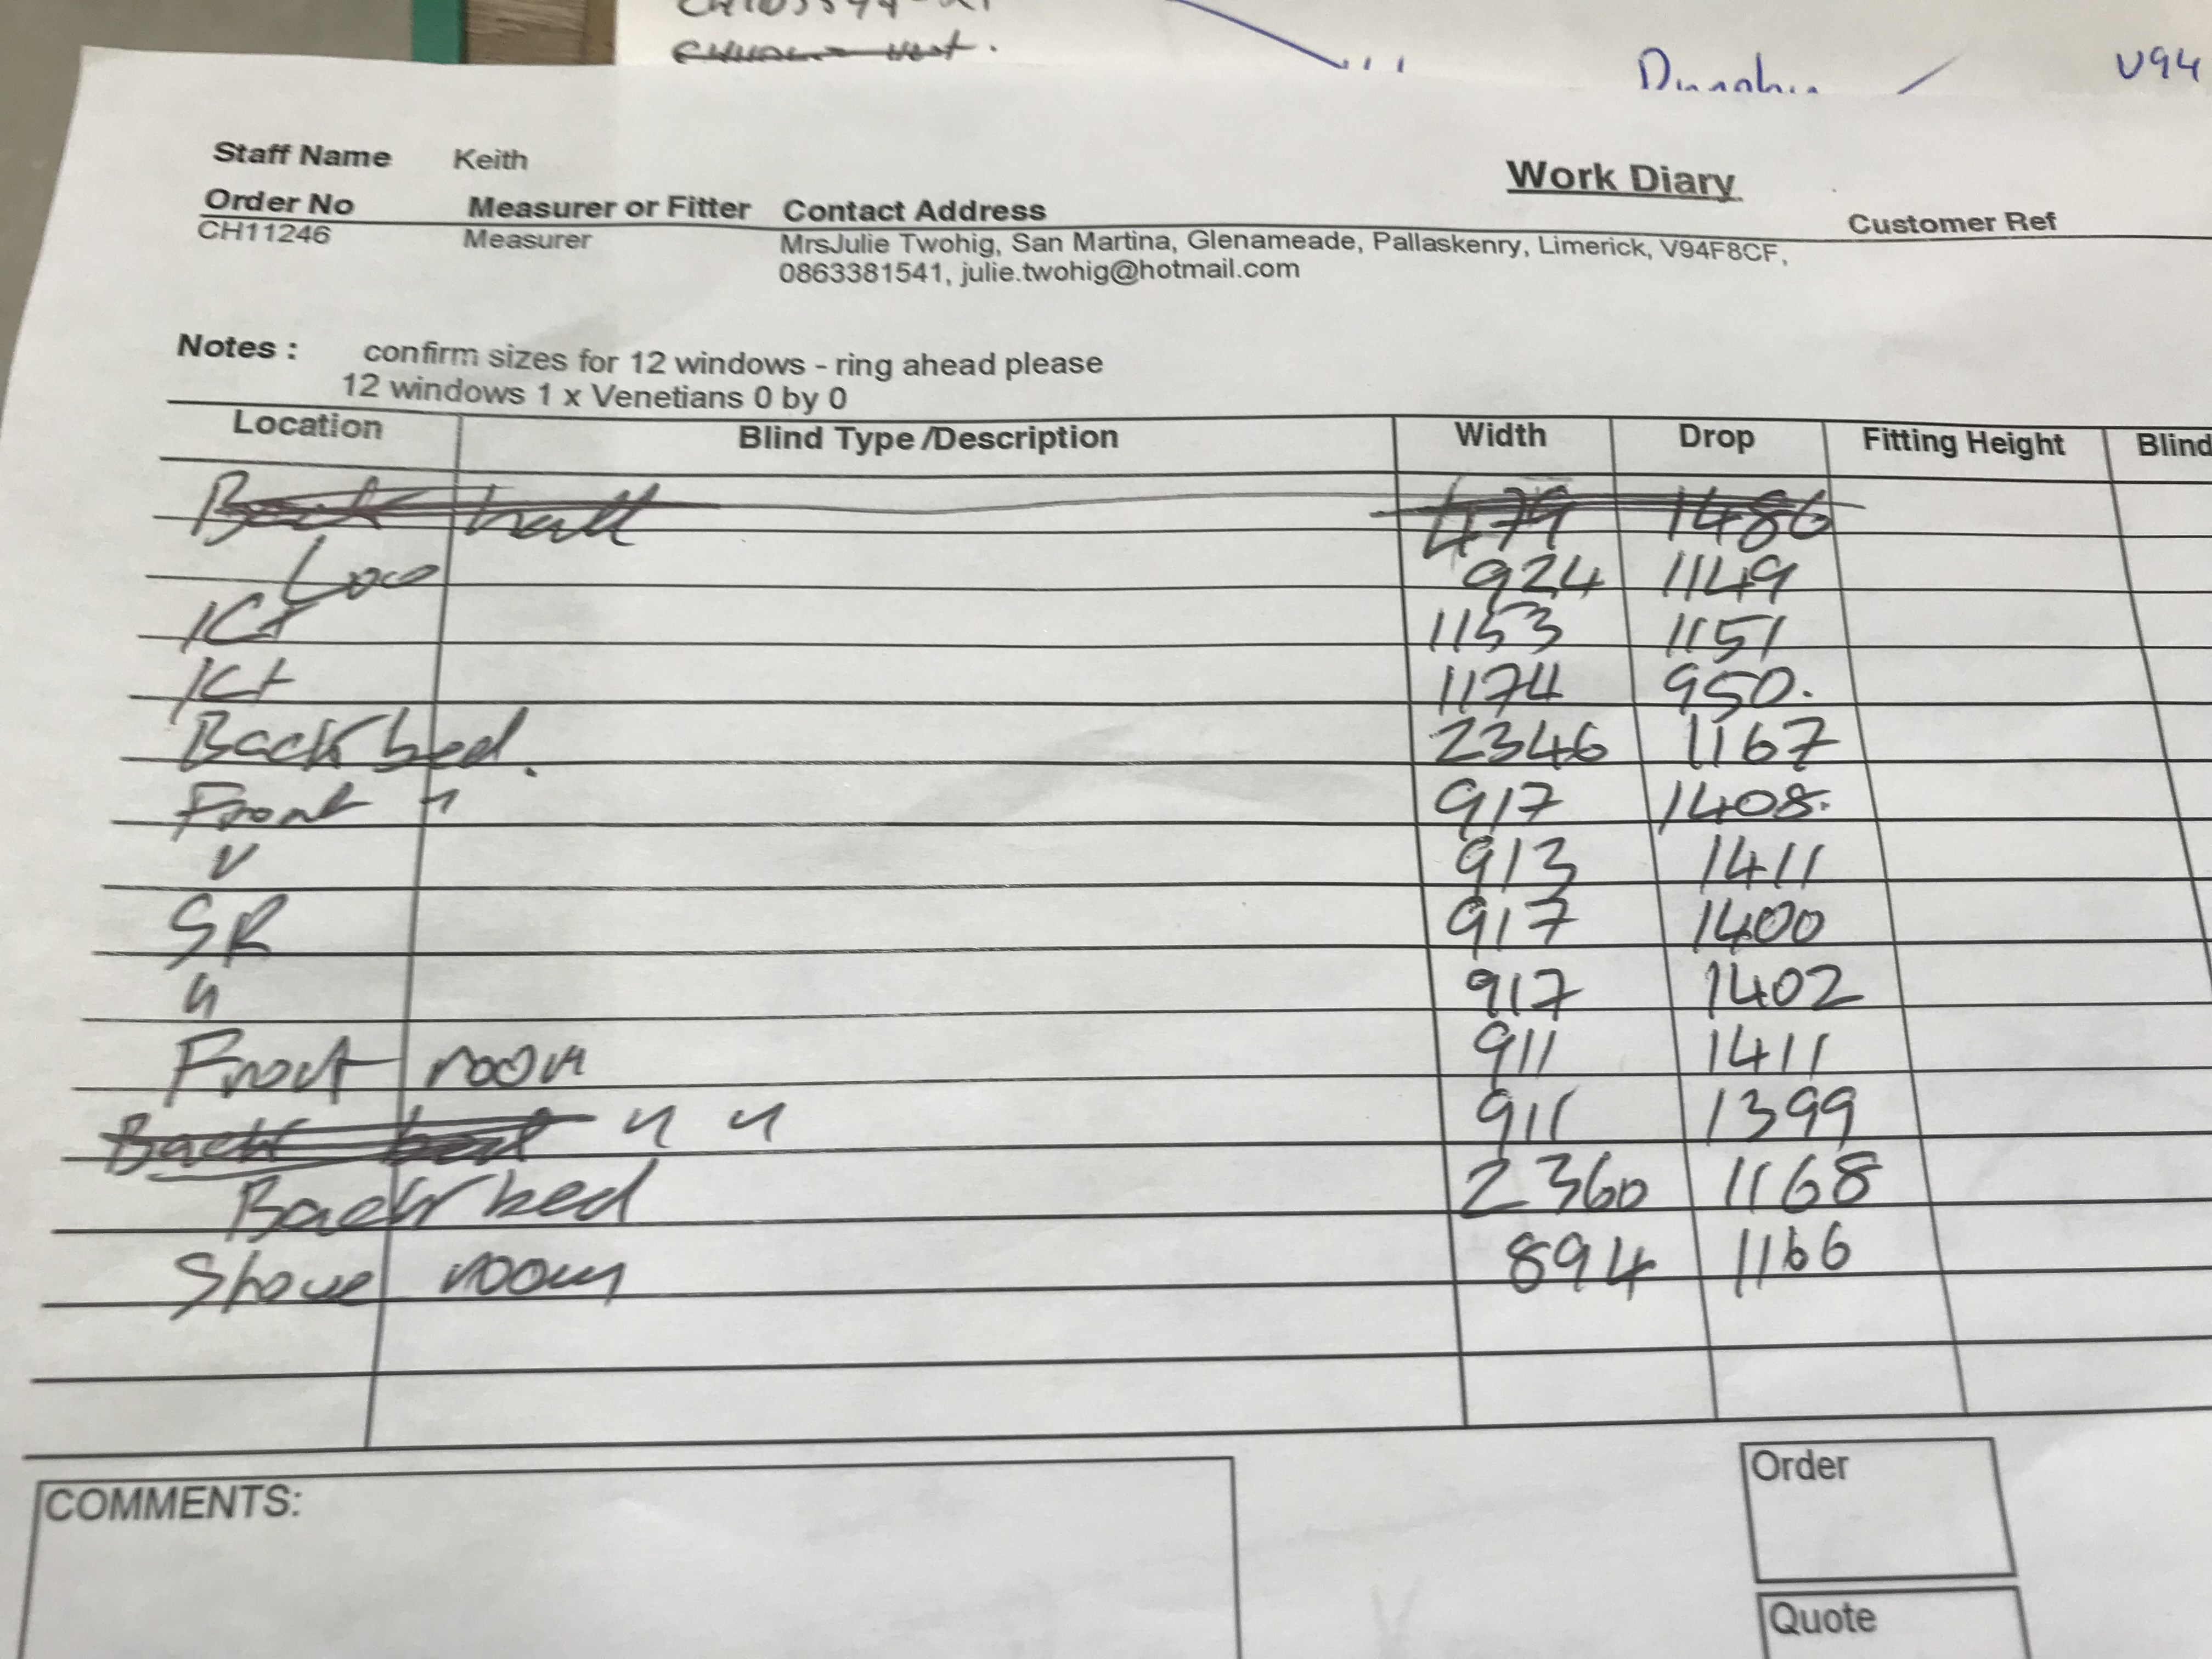 Dunahy / V94
Staff Name Keith
Work Diary
Order No Measurer or Fitter Contact Address Customer Ref
CH11246 Measurer MrsJulie Twohig, San Martina, Glenameade, Pallaskenry, Limerick, V94F8CF,
0863381541, julie.twohig@hotmail.com
Notes : confirm sizes for 12 windows - ring ahead please
12 windows 1 x Venetians 0 by 0
Location Blind Type /Description Width Drop Fitting Height Blind
Back hall 479 1486
Loo 924 1149
Kt 1153 1151
Kt 1174 950.
Back bed. 2346 1167
Front " 917 1408.
" 913 1411
SR 917 1400
" 917 1402
Front room 911 1411
Back bed " " 911 1399
Back bed 2360 1168
Shower room 894 1166
COMMENTS:
Order
Quote